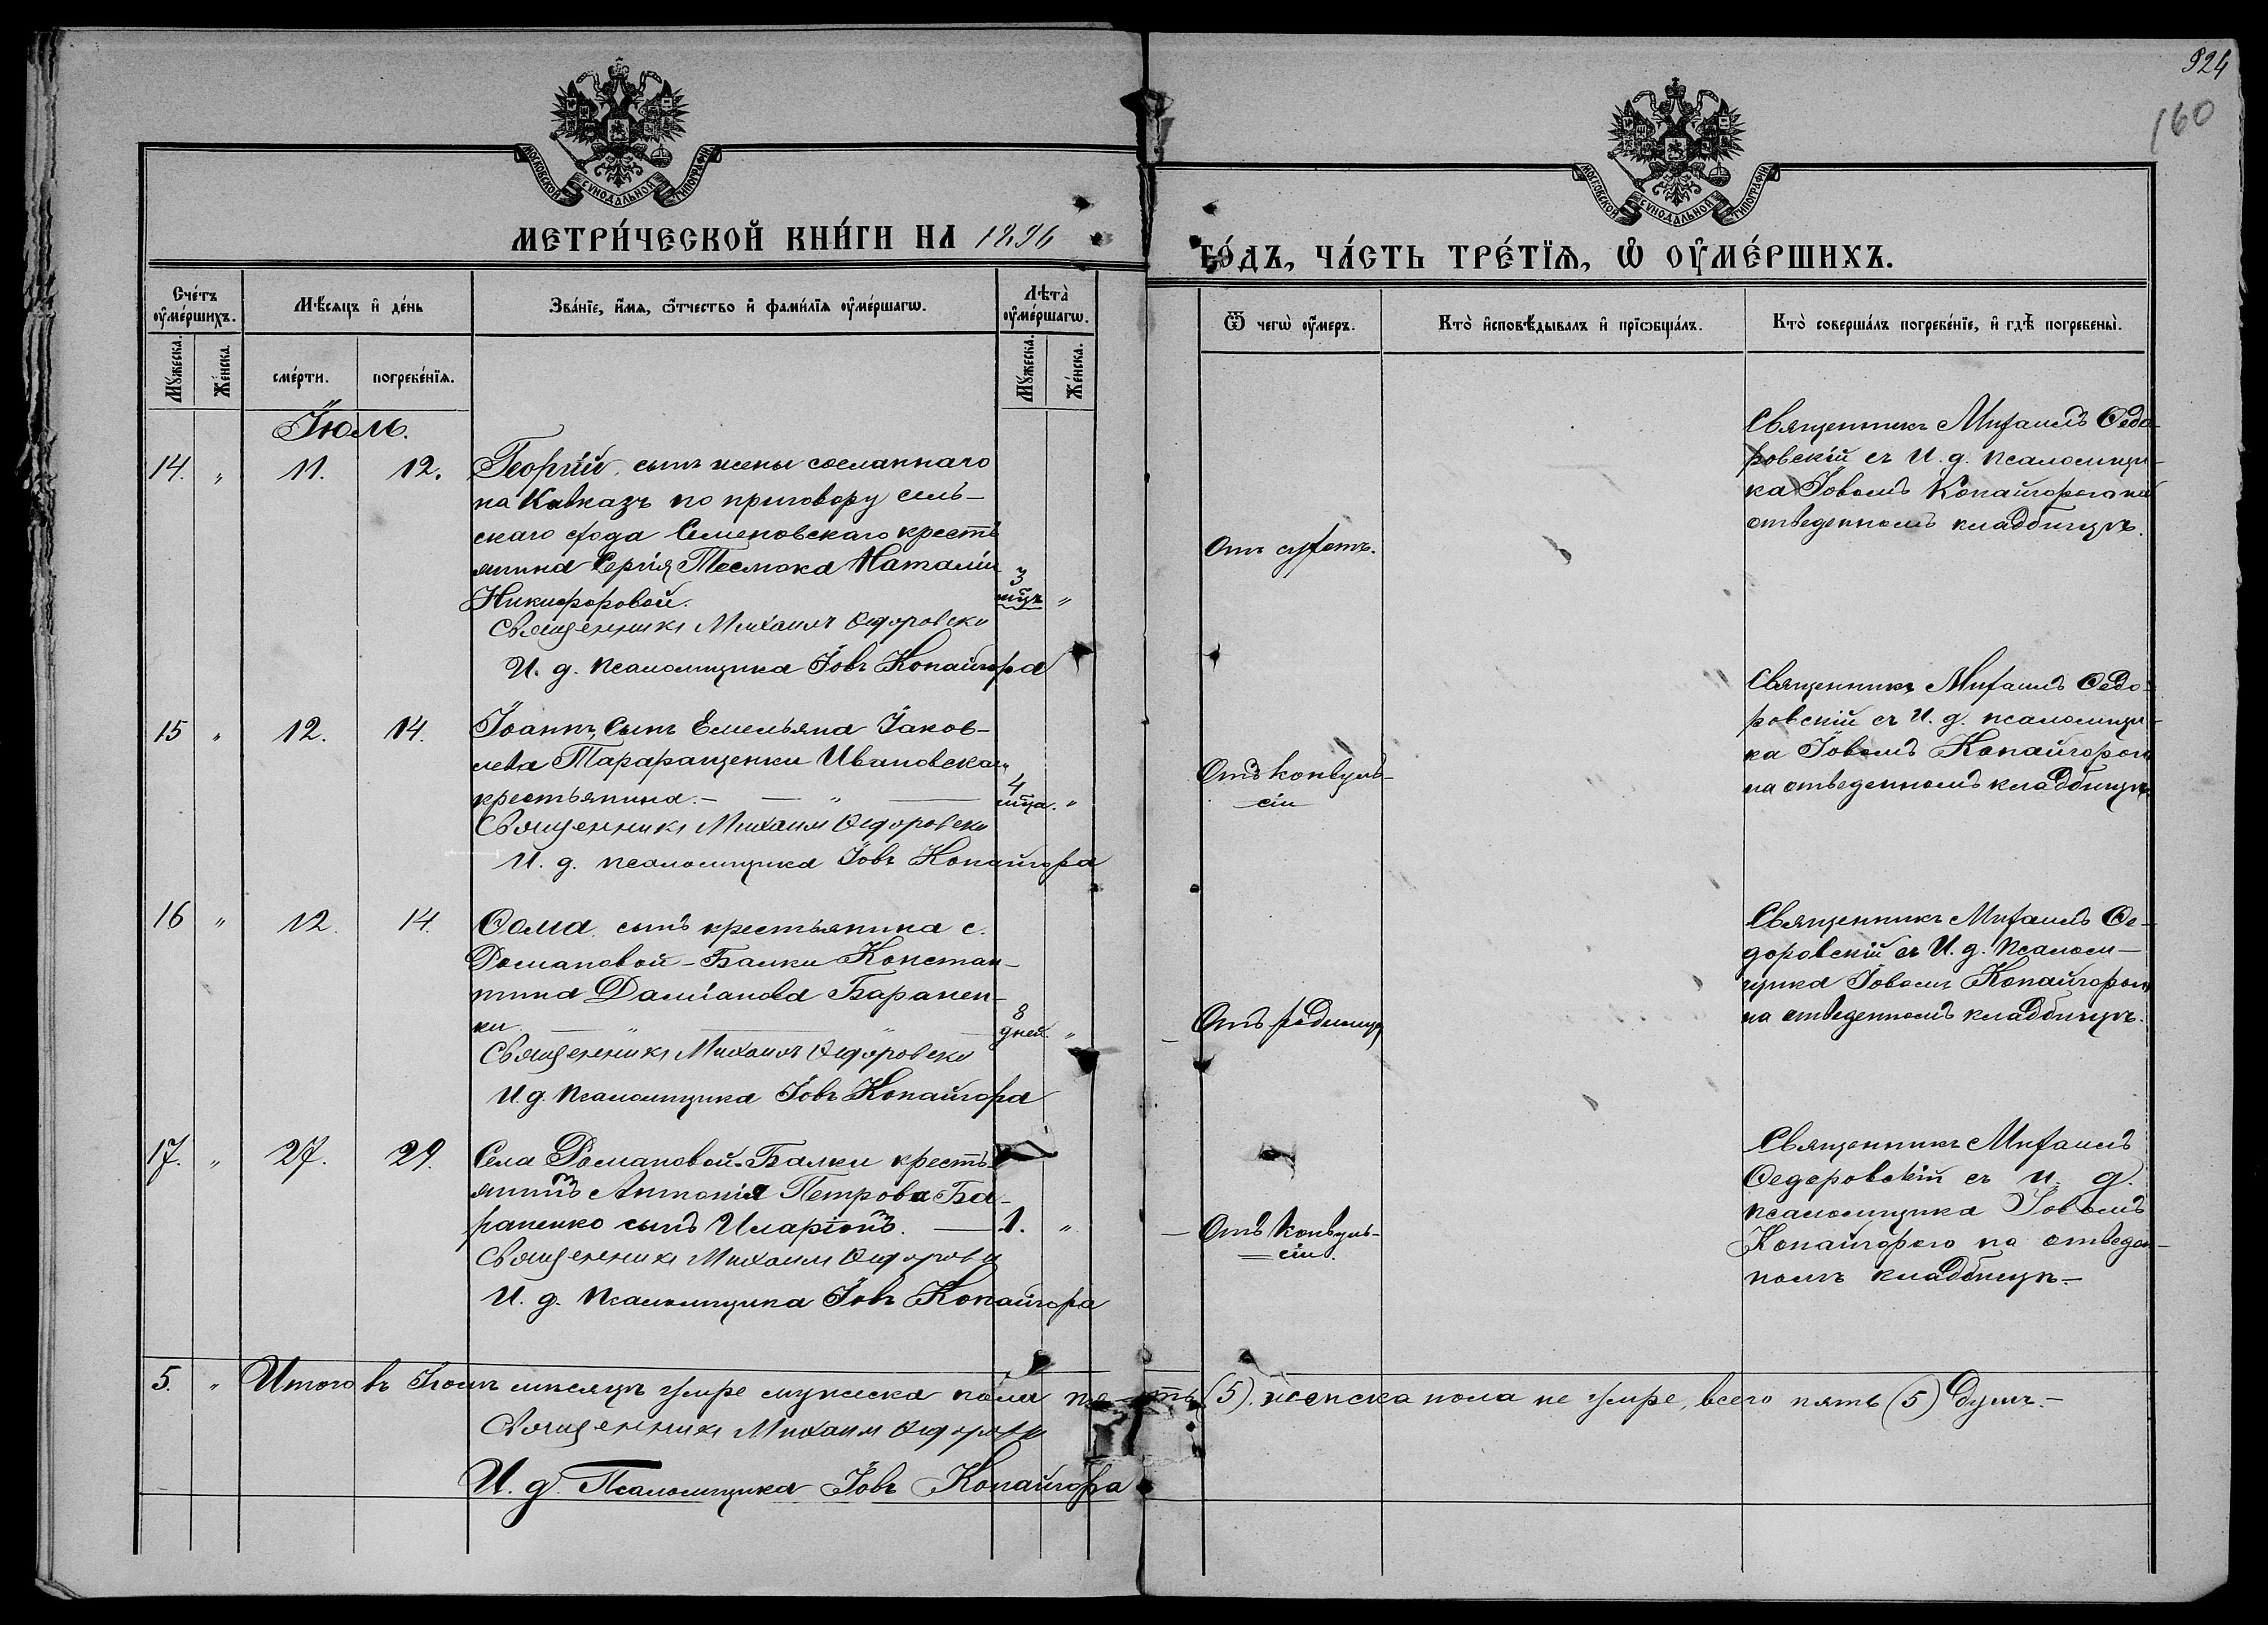 924
160
МОСКОВСКОЙ СУНОДАЛЬНОЙ ТИПОГРАФІИ
МОСКОВСКОЙ СУНОДАЛЬНОЙ ТИПОГРАФІИ
МЕТРИ́ЧЕСКОЙ КНИ́ГИ НА 1896
ГО́ДЪ, ЧА́СТЬ ТРЕ́ТІѦ, Ѡ҆ ОУ҆МЕ́РШИХЪ.
Сче́тъ оу҆ме́ршихъ.
Мѣсяцъ и҆ де́нь
Зва́нїе, и҆́мя, ѻ҆́тчество и҆ фами́лїя оу҆ме́ршагѡ.
Лѣта̀ оу҆ме́ршагѡ.
Ѿ чегѡ̀ оу҆́меръ.
Кто̀ и҆сповѣ́дывалъ и҆ прїѻбща́лъ.
Кто̀ соверша́лъ погребе́нїе, и҆ гдѣ̀ погребены̀.
Му́жеска.
Же́нска.
сме́рти.
погребе́нїя.
Му́жеска.
Же́нска.
Іюль.
14. „ 11. 12. Георгій, сынъ жены сосланнаго
на Кавказъ по приговору сель-
скаго схода Семеновскаго кресть
янина Сергія Теслюка Наталіи
Никифоровой. 3 мѣц. „
Священникъ Михаилъ Ѳедоровскі
И. д. псаломщика Іовъ Копайгора
Отъ сухотъ.
Священникъ Михаилъ Ѳедо-
ровскій съ И. д. псаломщи-
ка Іовомъ Копайгорою на
отведенномъ кладбищѣ.
15 „ 12. 14. Іоаннъ, сынъ Емельяна Іаков-
лева Тараращенки Ивановскаго
крестьянина. — „ — 4 мѣца. „
Священникъ Михаилъ Ѳедоровскі
И. д. псаломщика Іовъ Копайгора
Отъ конвуль-
сіи
Священникъ Михаилъ Ѳедо-
ровскій съ И. д. псаломщи-
ка Іовомъ Копайгорою
на отведенномъ кладбищѣ.
16 „ 12. 14. Ѳома, сынъ крестьянина с.
Романовой-Балки Констан-
тина Даміанова Баранен-
ки. — „ — 8 дней. „
Священникъ Михаилъ Ѳедоровскі
И. д. псаломщика Іовъ Копайгора
Отъ родимца
Священникъ Михаилъ Ѳе-
доровскій съ И. д. псалом-
щика Іовомъ Копайгорою
на отведенномъ кладбищѣ.
17. „ 27. 29. Села Романовой-Балки кресть-
янинъ Антонія Петрова Ба-
раненко сынъ Иларіонъ. — 1. „
Священникъ Михаилъ Ѳедоровскі
И. д. псаломщика Іовъ Копайгора
Отъ конвуль-
сіи.
Священникъ Михаилъ
Ѳедоровскій съ и. д.
псаломщика Іовомъ
Копайгорою на отведен-
номъ кладбищѣ.—
5. „ Итого въ Іюлѣ мѣсяцѣ умре мужеска пола пять (5), женска пола не умре, всего пять (5) душъ.—
Священникъ Михаилъ Ѳедоровскі
И. д. Псаломщика Іовъ Копайгора